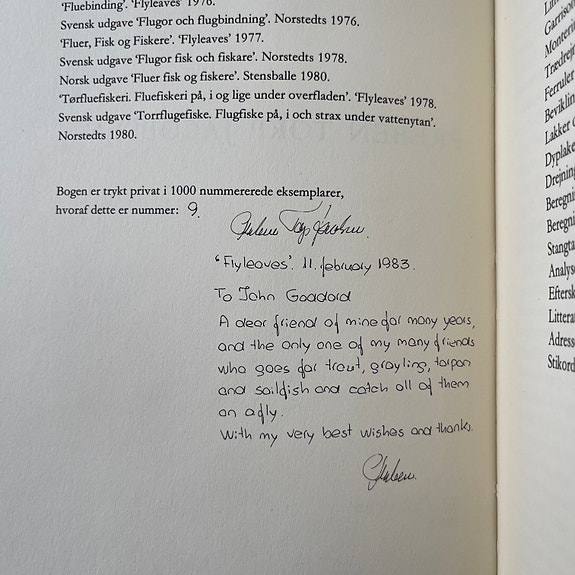 'Fluebinding'. 'Flyleaves' 1976.
Svensk udgave 'Flugor och flugbindning'. Norstedts 1976.
'Fluer, Fisk og Fiskere'. 'Flyleaves' 1977.
Svensk udgave 'Flugor fisk och fiskare'. Norstedts 1978.
Norsk udgave 'Fluer fisk og fiskere'. Stensballe 1980.
'Tørfluefiskeri. Fluefiskeri på, i og lige under overfladen'. 'Flyleaves' 1978.
Svensk udgave 'Torrflugefiske. Flugfiske på, i och strax under vattenytan'.
Norstedts 1980.
Bogen er trykt privat i 1000 nummererede eksemplarer,
hvoraf dette er nummer: 9.
Preben Torp Jacobsen.
'Flyleaves'. 11. february 1983.
To John Goddard
A dear friend of mine for many years,
and the only one of my many friends
who goes for trout, grayling, tarpon
and sailfish and catch all of them
on a fly.
With my very best wishes and thanks.
Preben.
Garrison
Monterin
Trædrejn
Ferruler
Beviklin
Lakker o
Dyplake
Drejning
Beregni
Beregni
Stangta
Analyse
Eftersk
Littera
Adress
Stikord